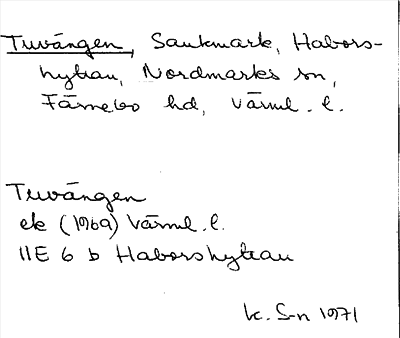 Tuvängen, Sankmark, Habors-
hyttan, Nordmarks sn,
Färnebo hd, Värml. l.
Tuvängen
ek (1969) Värml. l.
11E 6 b Haborshyttan
k. S-n 1971